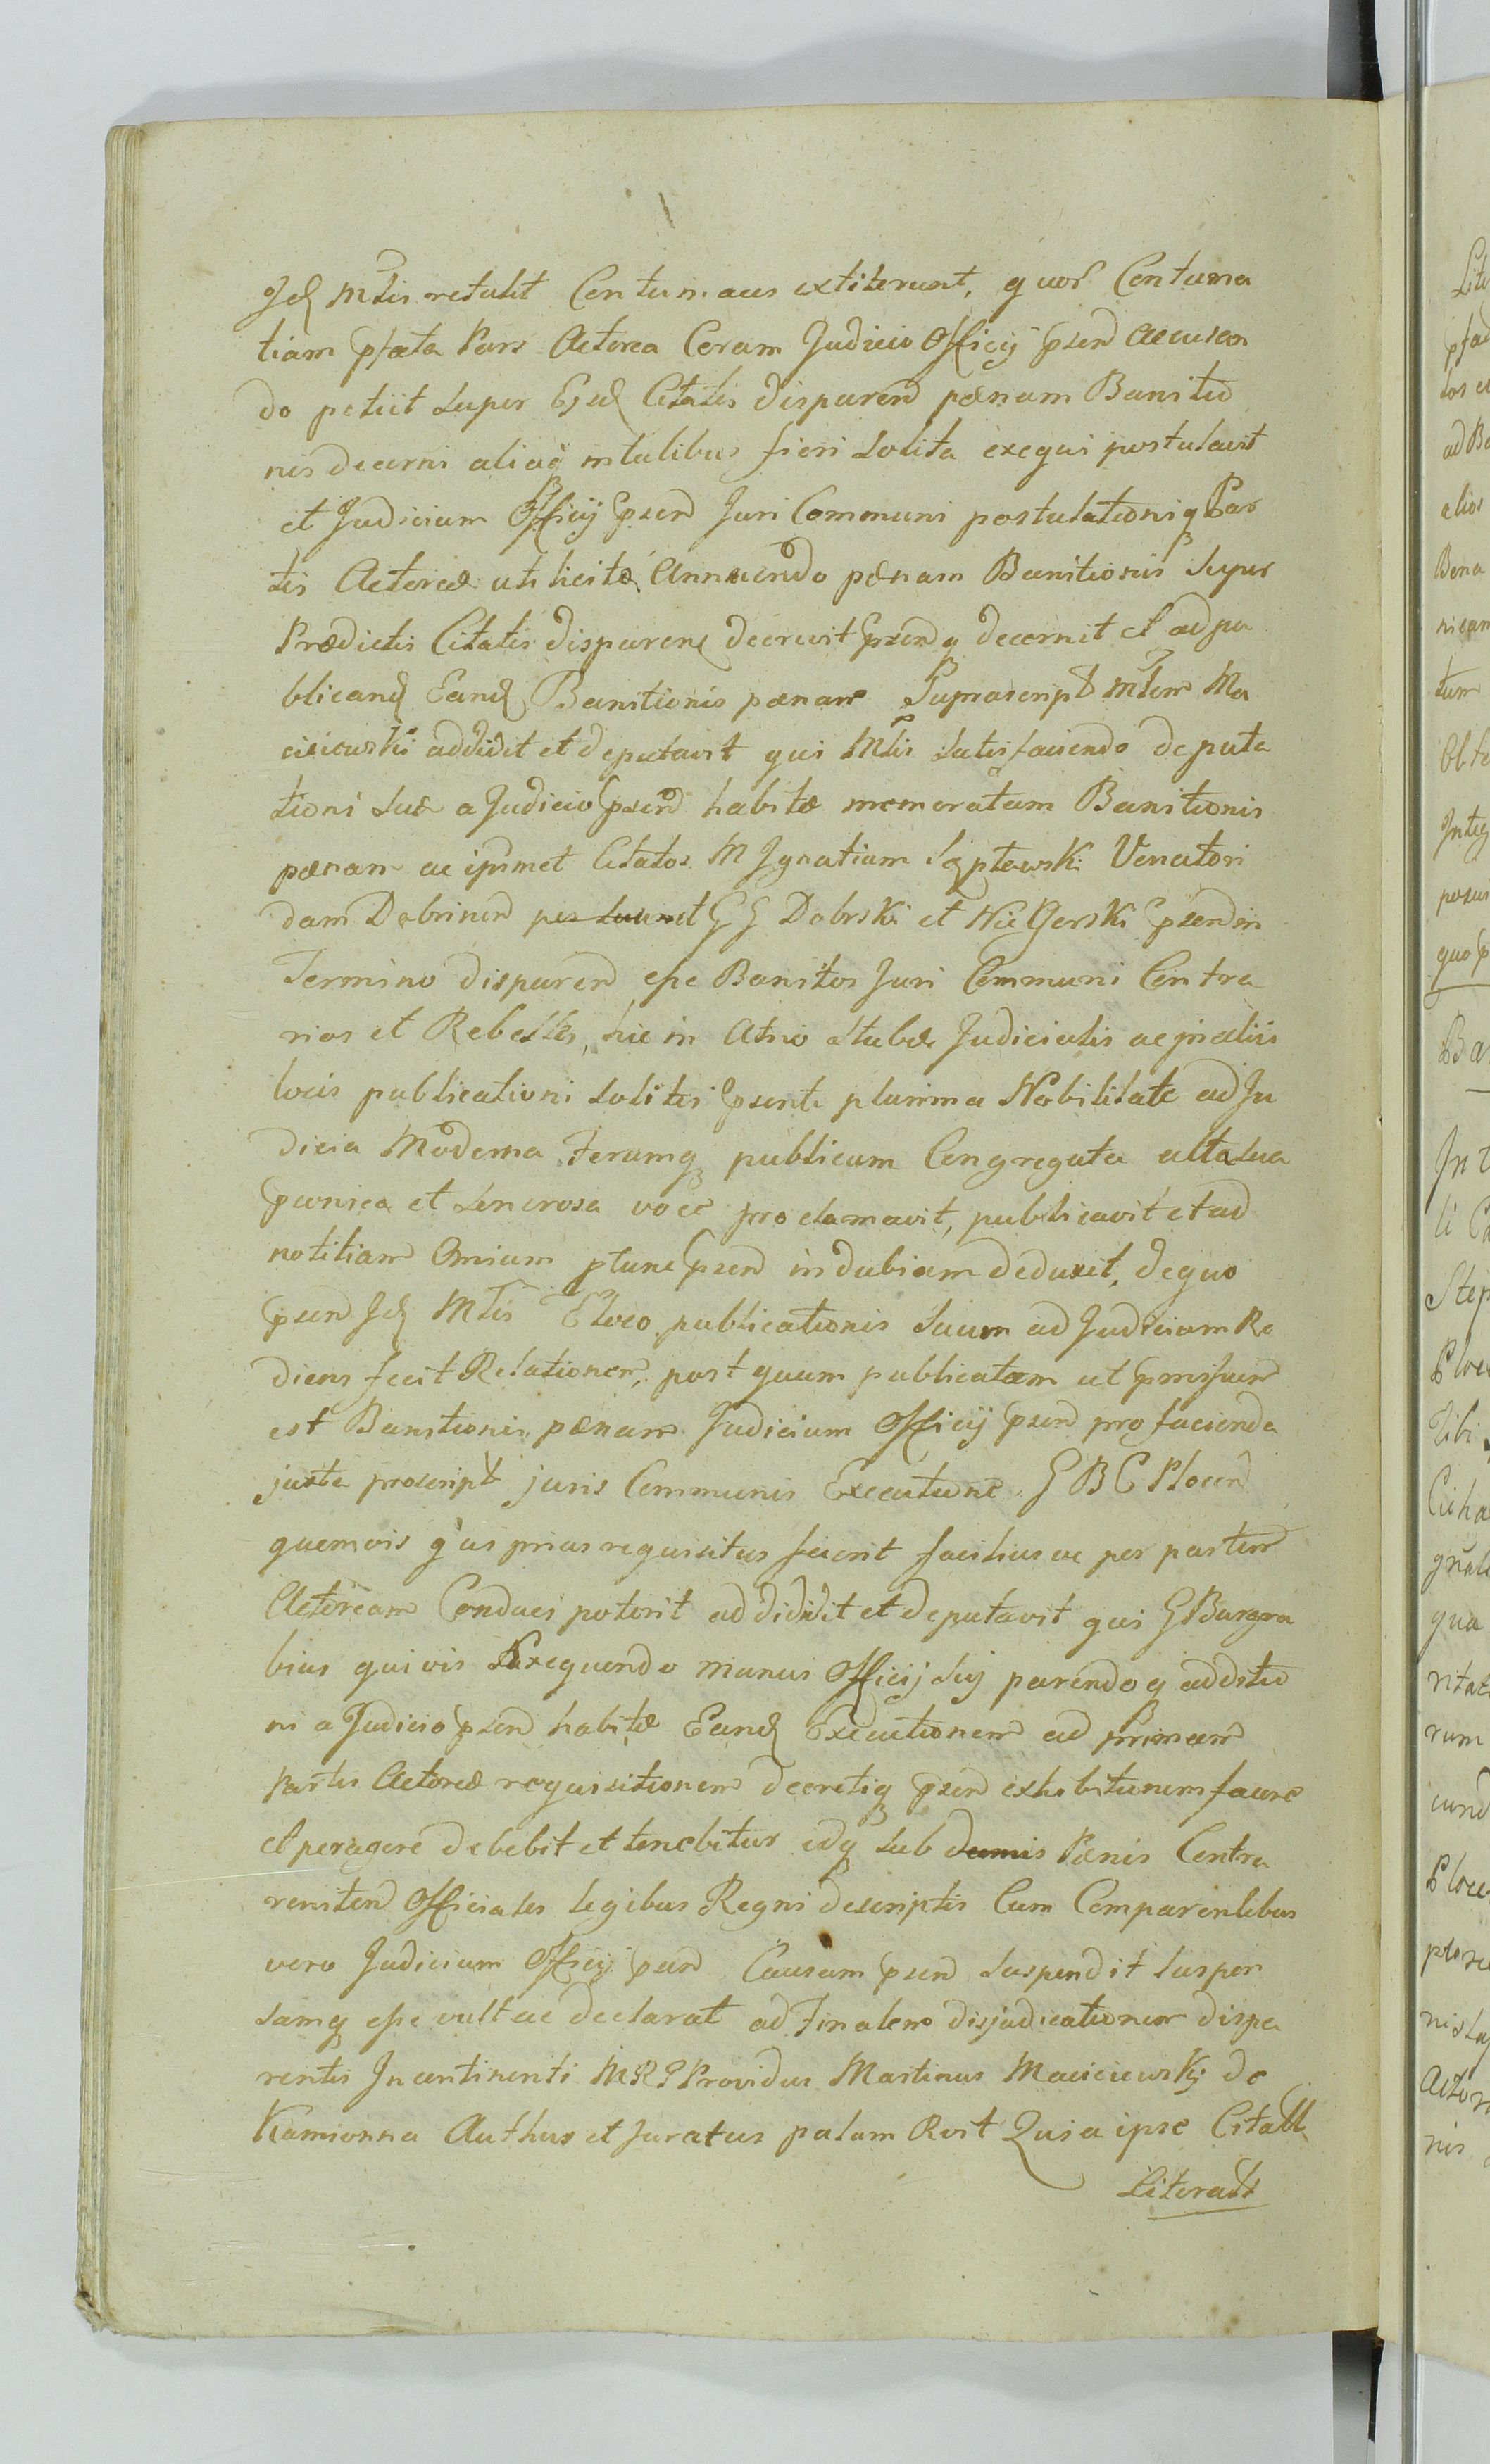 Jd Mtlis retulit Contumaces extiterunt, quor Contuma
tiam pfata Pars Actorea Coram Judicio Officij psend accusan
do petiit super Ejsd Citatis disparend pænam Banitio
nis decerni aliaq in talibus fieri solita exequi postulavit
et Judicium Officij psend Juri Communi postulationiq Par
tis Actoreæ uti licitæ Annuendo pænam Banitionis super
Prædictis Citatis disparend decrevit psendq decernit et ad pu
blicand Eand Banitionis pænam Suprascript Mtlem Ma
cieiewski addidit et deputavit qui Mtlis satisfaciendo deputa
tioni suæ a Judicio psend habitæ memoratam Banitionis
pænam ac ipsmet Citatos M Ignatium Venatori
dam Dobrinen GG Dobrski et psend in
Termino disparend esse Banitos Juri Communi Contra
rios et Rebelles, hic in Atrio Stubæ Judicialis ac in aliis
locis publicationi solitis psente plurima Nobilitate ad Ju
dicia Moderna Forumq publicum Congregata alta sua
et sonorosa voce proclamavit, publicavit et ad
notitiam Omnium ptunc psend indubiam deduxit, de quo
psend Jd Mtlis E loco publicationis suum ad Judicium Re
diens fecit Relationem, post quam publicatam ut pmissum
est Banitionis pænam Judicium Officij psend pro facienda
juxta proscript juris Communis Executione G B C Plocen
quemvis q us prius requisitus fuerit faciliusve per partem
Actoream Conduci poterit addidit et deputavit qui G Burgra
bius quivis Exequendo munus Officij sui parendoq additio
ni a Judicio psend habitæ Eand Executionem ad primam
Partis Actoreæ requisitionem decretiq psend exhibitionem facere
et peragere debebit et tenebitur idq sub Pænis Contra
reniten Officiales legibus Regni descriptis Cum Comparentibus
vero Judicium Officij psend Causam psend suspendit suspen
samq esse vult ac declarat ad Finalem disjudicationem dispa
rentis Incontinenti M R P Providus Martinus Macieiewski de
Kamionna Authus et Juratus palam Rvit Quia ipse Citatt
Literatt